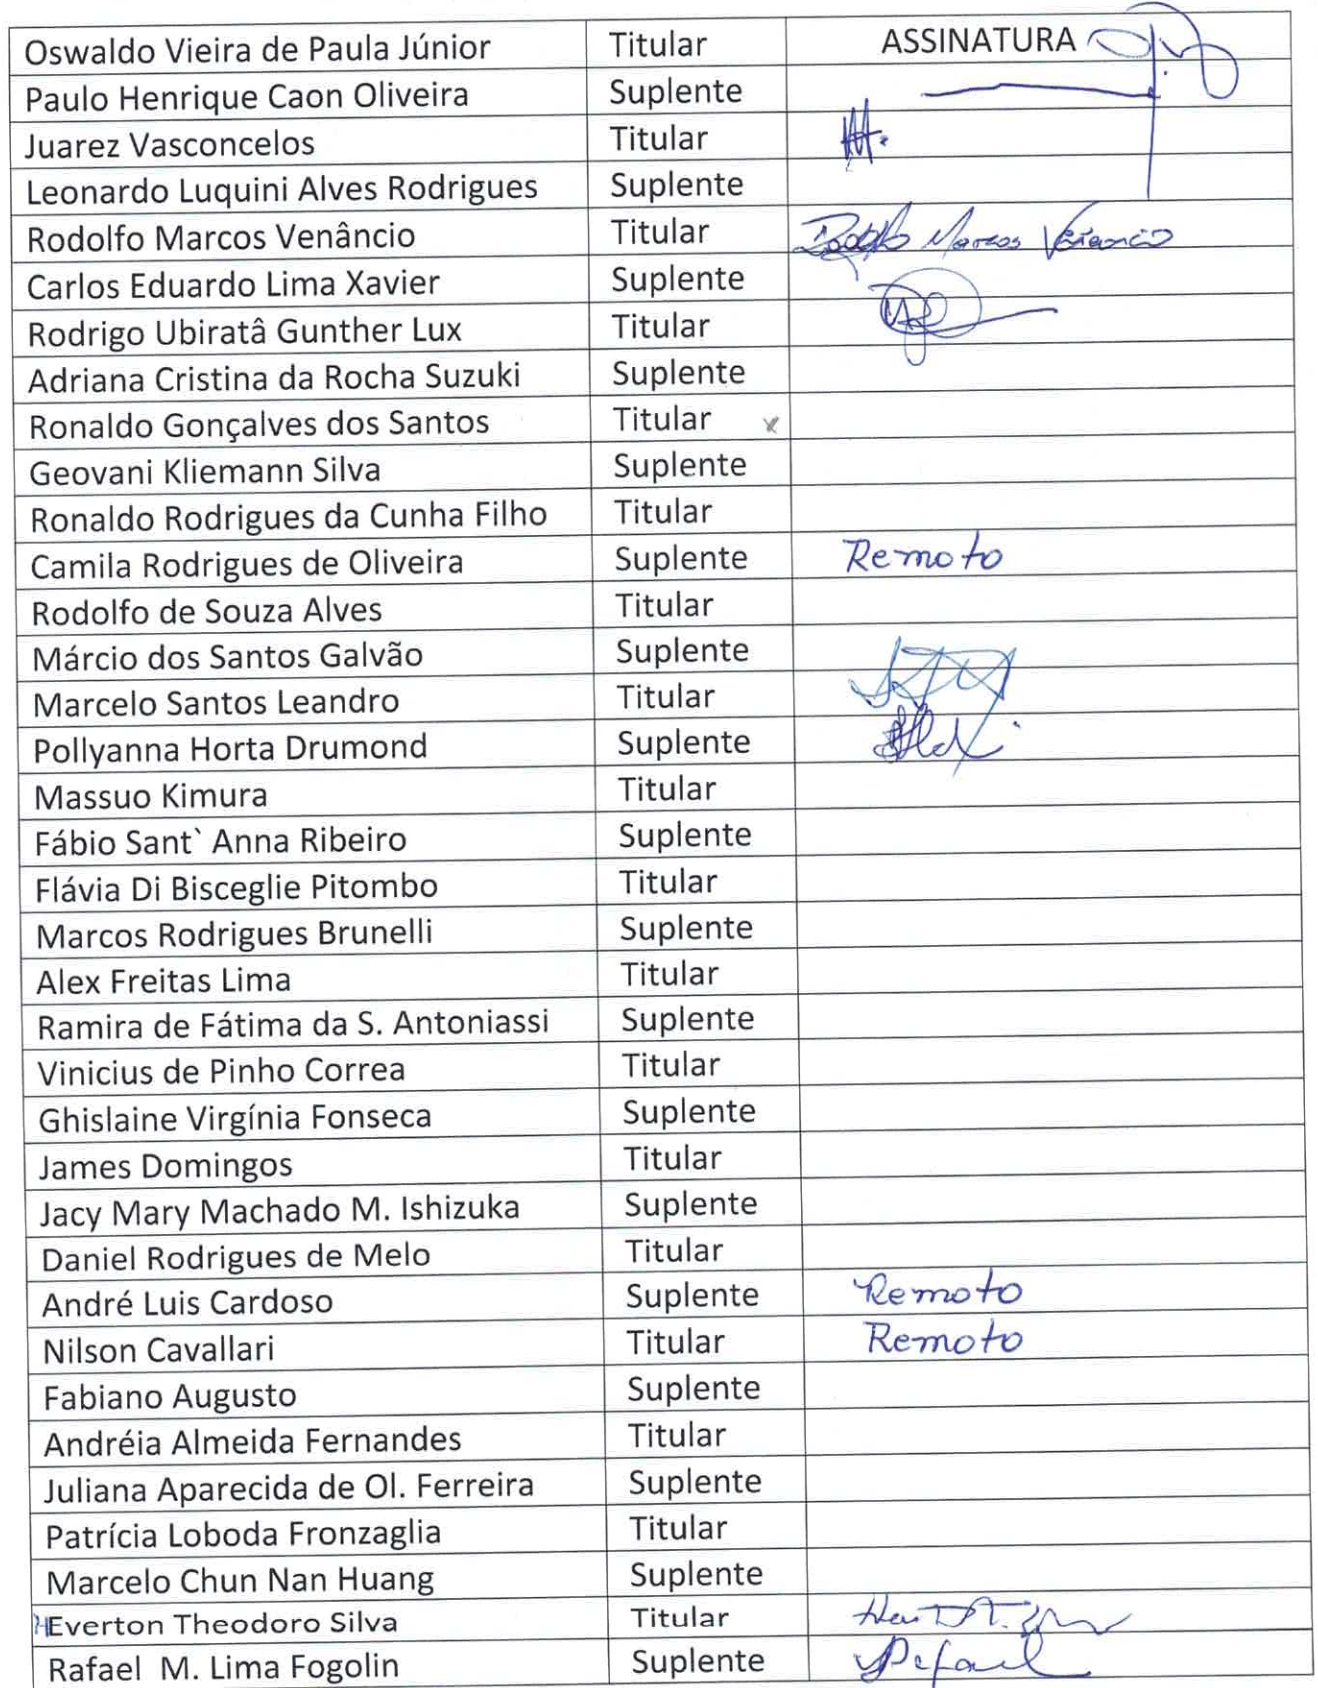 Oswaldo Vieira de Paula Júnior Titular ASSINATURA
Paulo Henrique Caon Oliveira Suplente
Juarez Vasconcelos Titular
Leonardo Luquini Alves Rodrigues Suplente
Rodolfo Marcos Venâncio Titular Rodolfo Marcos Venancio
Carlos Eduardo Lima Xavier Suplente
Rodrigo Ubiratâ Gunther Lux Titular
Adriana Cristina da Rocha Suzuki Suplente
Ronaldo Gonçalves dos Santos Titular x
Geovani Kliemann Silva Suplente
Ronaldo Rodrigues da Cunha Filho Titular
Camila Rodrigues de Oliveira Suplente Remoto
Rodolfo de Souza Alves Titular
Márcio dos Santos Galvão Suplente
Marcelo Santos Leandro Titular
Pollyanna Horta Drumond Suplente
Massuo Kimura Titular
Fábio Sant` Anna Ribeiro Suplente
Flávia Di Bisceglie Pitombo Titular
Marcos Rodrigues Brunelli Suplente
Alex Freitas Lima Titular
Ramira de Fátima da S. Antoniassi Suplente
Vinicius de Pinho Correa Titular
Ghislaine Virgínia Fonseca Suplente
James Domingos Titular
Jacy Mary Machado M. Ishizuka Suplente
Daniel Rodrigues de Melo Titular
André Luis Cardoso Suplente Remoto
Nilson Cavallari Titular Remoto
Fabiano Augusto Suplente
Andréia Almeida Fernandes Titular
Juliana Aparecida de Ol. Ferreira Suplente
Patrícia Loboda Fronzaglia Titular
Marcelo Chun Nan Huang Suplente
HEverton Theodoro Silva Titular
Rafael M. Lima Fogolin Suplente Rafael